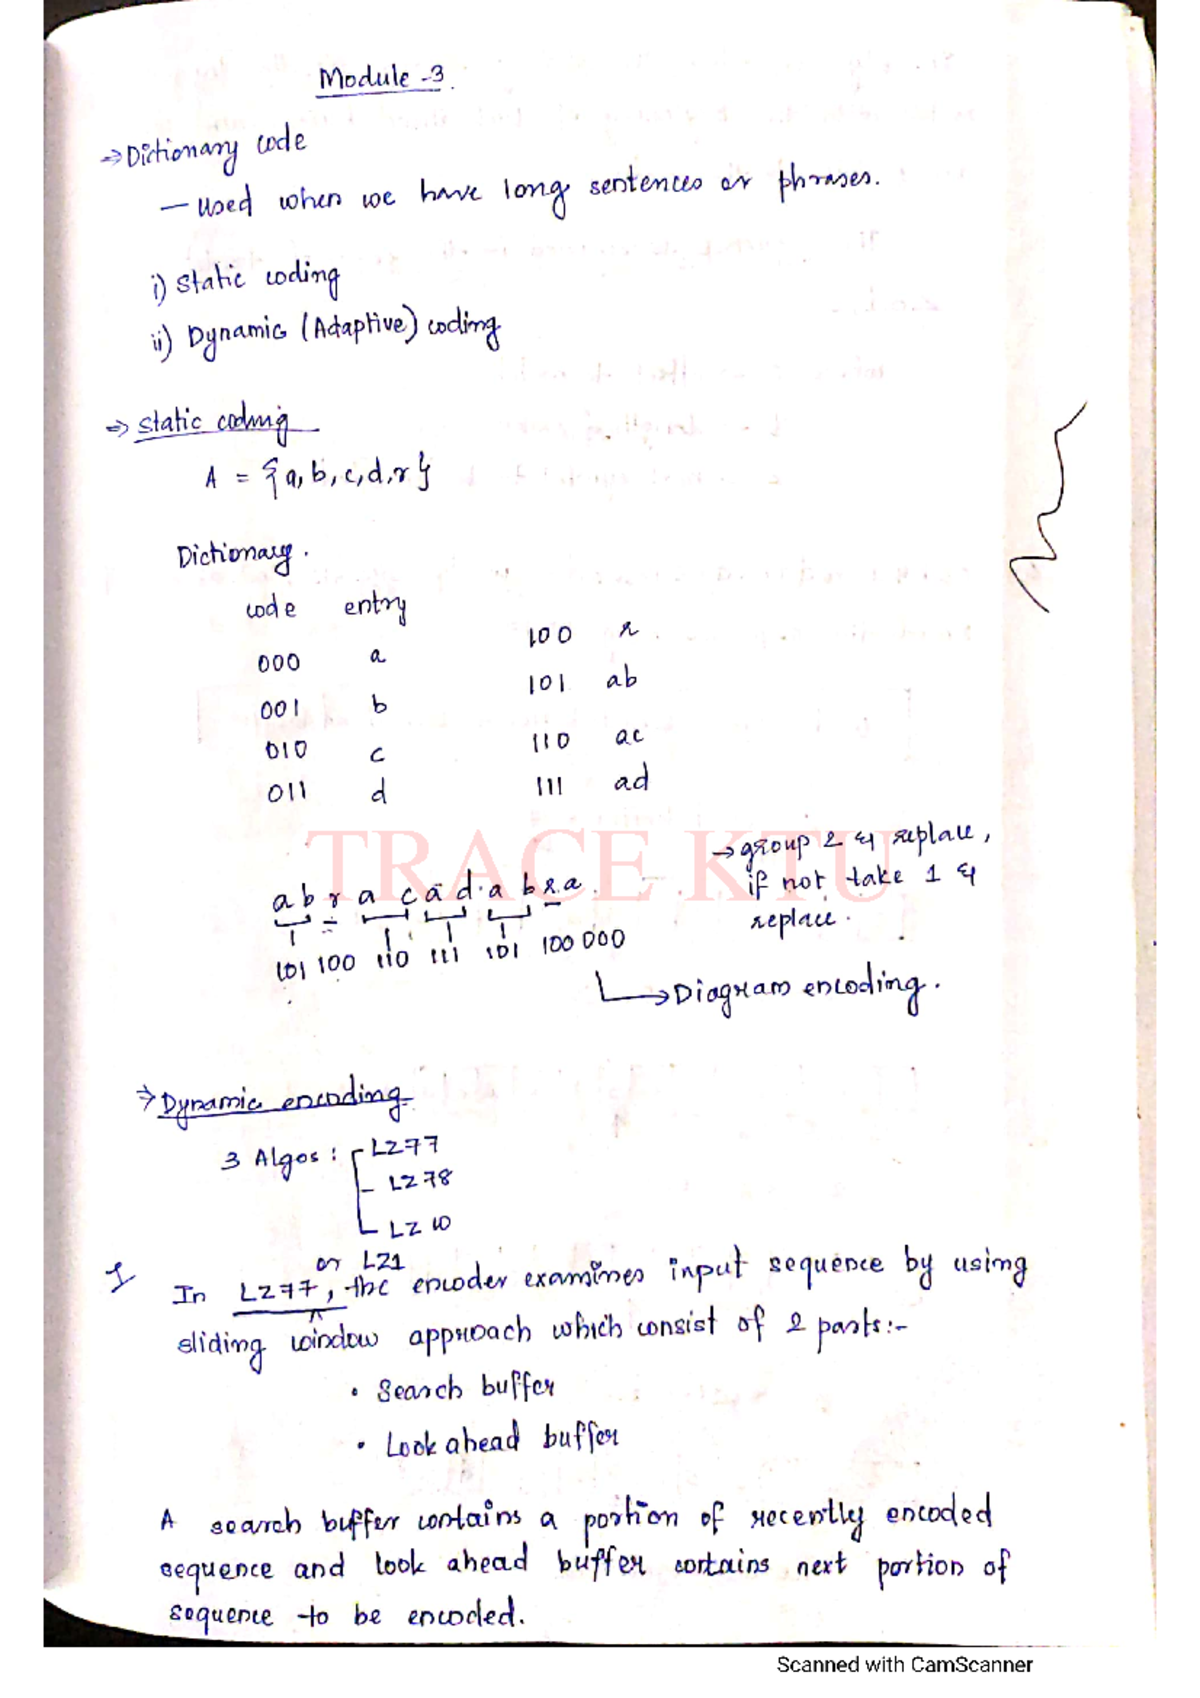 Module -3.
⇒ Dictionary code
— used when we have long sentences or phrases.
i) Static coding
ii) Dynamic (Adaptive) coding
⇒ Static coding
A = {a, b, c, d, r}
Dictionary.
code entry
000 a
001 b
010 c
011 d
100 r
101 ab
110 ac
111 ad
TRACE KTU
→ group 2 & replace,
if not take 1 &
replace.
a b r a c a d a b r a.
101 100 110 111 101 100 000
→ Diagram encoding.
⇒ Dynamic encoding
3 Algos : LZ77
- LZ78
LZ W
or LZ1
I In LZ77, the encoder examines input sequence by using
sliding window approach which consist of 2 parts:-
• Search buffer
• Look ahead buffer
A search buffer contains a portion of recently encoded
sequence and look ahead buffer contains next portion of
sequence to be encoded.
Scanned with CamScanner